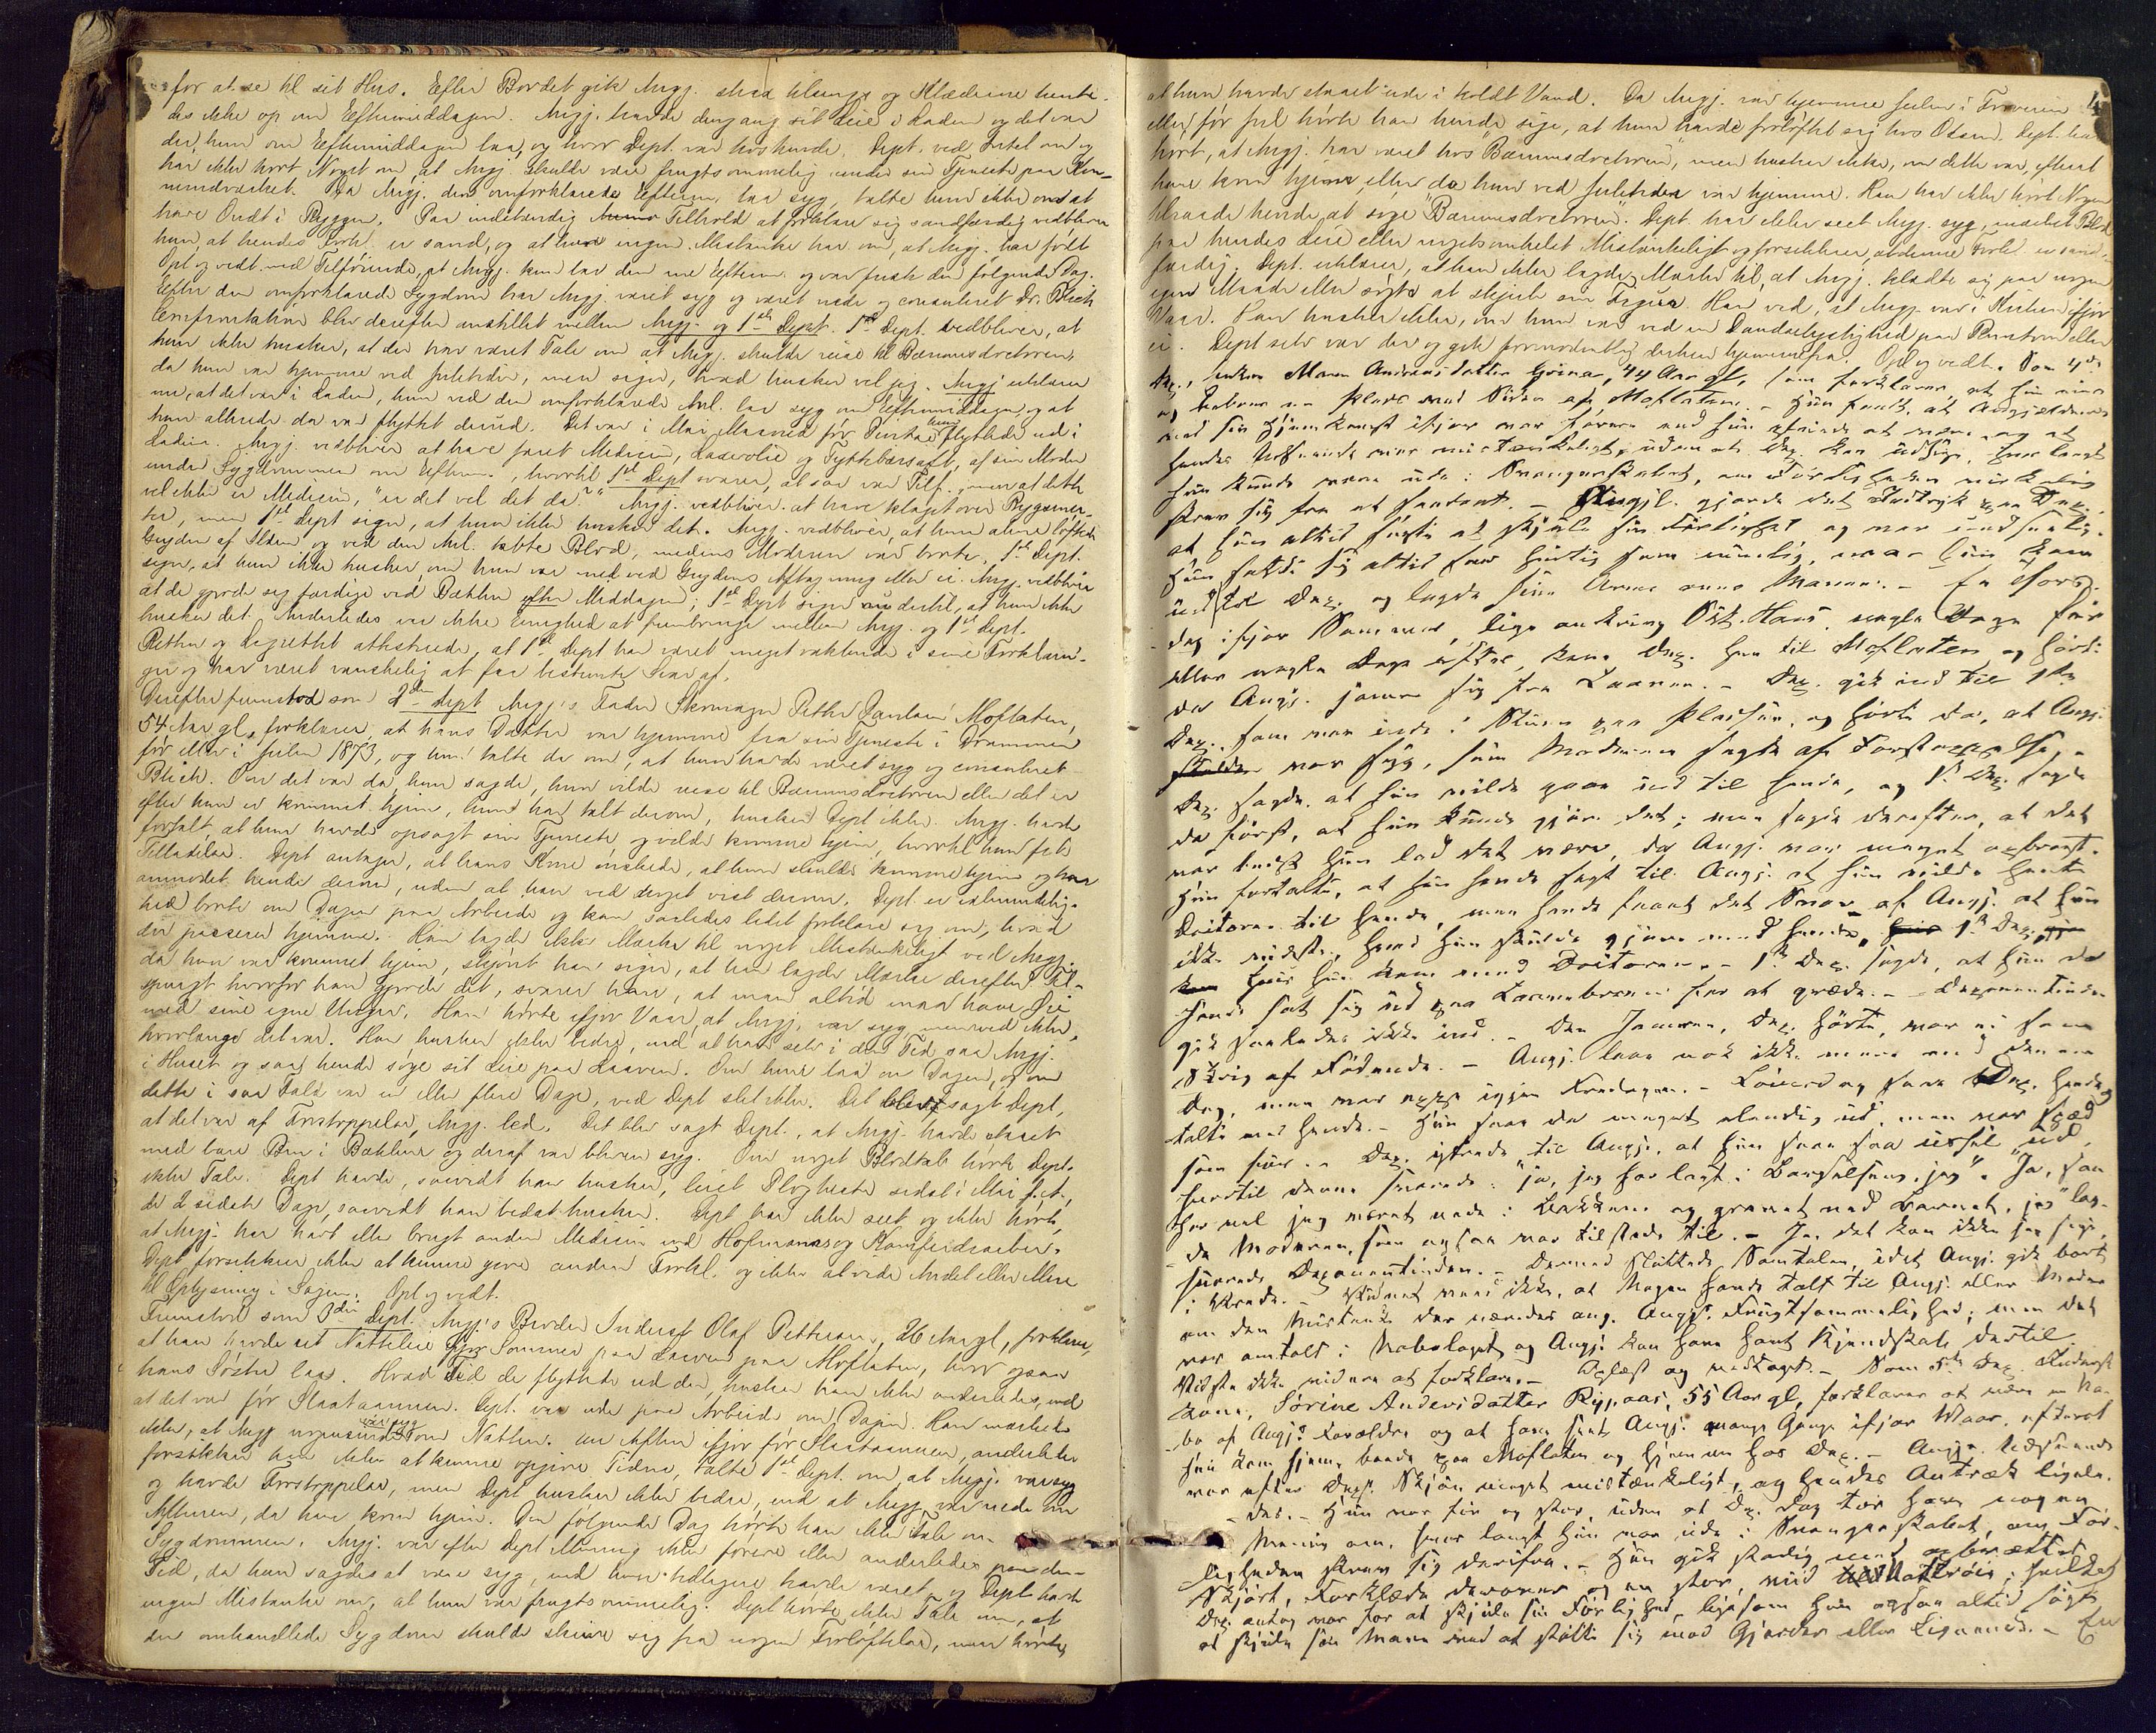 for at se til sit Hus. Efter Bordet gik Angj. strax tilsengs og Klædeine hente-
des ikke op om Eftermiddagen. Angj. havde dengang sit Leie i Laden og det var
der, hun om Eftermiddagen laa, og hvor Dept. var hos hende. Dept. ved Intet om og
har ikke hørt Noget om, at Angj. skulde være frugtsommelig under sin Tjeneste paa
mindværket. Da Angj. den omforklarede Efterm. laa syg, talte hun ikke om at
have Ondt i Ryggen. Paa indstændig Tilhold at forklare sig sandfærdig vedbliver
hun, at hendes Forkl. er sand, og at hun ingen Mistanke har om, at Angj. har født.
Opl. og vedt. med Tilføiende, at Angj. kun laa den ene Efterm. og var frisk den følgende Dag.
Efter den omforklarede Sygdom har Angj. været syg og været nede og consuleret Dr. Blich
Confrontation blev derefter anstillet mellem Angj. og 1ste Dept. 1ste Dept. vedbliver, at
hun ikke husker, at der har været Tale om at Angj. skulde reise til Bærumsdoctoren,
da hun var hjemme ved Juletider, men siger, hvad husker vel jeg. Angj. erklærer
nu, at det var i Laden, hun ved den omforklarede Anl. laa syg om Eftermiddagen, og at
hun allerede da var flyttet derud. Det var i Mai Maaned før Pintse hun flyttede ud i
Laden. Angj. vedbliver at have faaet Medicin, Laxerolie og Tyttebærsaft, af sin Moder
under Sygdommen om Efterm., hvortil 1ste Dept. svarer, at saa var Tilf., men at dette
vel ikke er Medicin, "er det vel det da?" Angj. vedbliver at have klaget over Rygsmer-
ter, men 1ste Dept. siger, at hun ikke husker det. Angj. vedbliver, at hun alene løftede
Gryden af Ilden og ved den Anl. tabte Blod, medens Moderen var borte. 1ste Dept.
siger, at hun ikke husker, om hun var med ved Grydens Aftagning eller ei. Angj. vedbliver
at de gjorde sig færdige ved Bækken efter Middagen; 1ste Dept. siger nu dertil, at hun ikke
husker det. Anderledes var ikke Enighed at frembringe mellem Angj. og 1ste Dept.
Retten og Lagrettet attesterede, at 1ste Dept. har været meget vaklende i sine Forklarin-
ger og har været vanskelig at faa bestemte Svar af.
Derefter fremstod som 2den Dept. Angj's Fader Skomager Petter Paulsen Moflaten,
54 Aar gl., forklarer, at hans Datter var hjemme fra sin Tjeneste i Drammen
før eller i Julen 1873, og hun talte da om, at hun havde været syg og consuleret
Blich. Om det var da, hun sagde, hun vilde reise til Bærumsdoctoren eller det er
efter hun er kommet hjem, hun har talt derom, husker Dept. ikke. Angj. havde
fortalt, at hun havde opsagt sin Tjeneste, og vilde komme hjem, hvortil hun fik
Tilladelse. Dept. antager, at hans Kone ønskede, at hun skulde komme hjem og har
anmodet hende derom, uden at han ved noget vist derom. Dept. er almindelig-
hed borte om Dagen paa Arbeide og kan saaledes lidet forklare sig om, hvad
der passerer hjemme. Han lagde ikke Mærke til noget Mistænkeligt ved Angj.
da hun var kommet hjem, skjønt han siger, at han lagde Mærke derefter. Til-
spurgt hvorfor han gjorde det, svarer han, at man altid maa have Øie
med sine egne Unger. Han hørte ifjor Vaar, at Angj. var syg, men ved ikke,
hvorlænge det var. Han husker ikke bedre, end at han selv i den Tid saa Angj.
i Huset og saa hende søge sit Leie paa Laaven. Om hun laa om Dagen, og om
dette i saa Fald var en eller flere Dage, ved Dept. slet ikke. Det blev sagt Dept.,
at det var af Forstoppelse, Angj. led. Det blev sagt Dept., at Angj. havde staaet
med bare Ben i Bækken og deraf var bleven syg. Om noget Blodtab hørte Dept.
ikke Tale. Dept. havde, saavidt han husker, leiet Ploghester sidst i Mai f. A.,
de 2 sidste Dage, saavidt han bedst husker. Dept. har ikke seet og ikke hørt,
at Angj. har havt eller brugt anden Medicin end Hofmanns og Kamferdraaber.
Dept. forsikkrer ikke at kunne give anden Forkl. og ikke at vide Andet eller Mere
til Oplysning i Sagen. Opl. og vedt.
Fremstod som 3die Dept. Angj's Broder Inderst Olaf Pettersen, 26 Aar gl., forklarer,
at han havde sit Natteleie ifjor Sommer paa Laaven paa Moflaten, hvor ogsaa
hans Søster laa. Hvad Tid de flyttede ud der, husker han ikke anderledes, end
at det var før Slaataannen. Dept. var ude paa Arbeide om Dagen. Han mærkede
ikke, at Angj. nogensinde var syg om Natten. En Aften ifjor før Slaataannen, anderledes
forsikkrer han ikke at kunne opgive Tiden, talte 1ste Dept. om, at Angj. var syg
og havde Forstoppelse, men Dept. husker ikke bedre, end at Angj. var nede om
Aftenen, da han kom hjem. Den følgende Dag hørte han ikke Tale om
Sygdommen. Angj. var efter Dept. Mening ikke førere eller anderledes paa den
Tid, da hun sagdes at være syg, end hun tidligere havde været, og Dept. havde
ingen Mistanke om, at hun var frugtsommelig. Dept. hørte ikke Tale om, at
den omhandlede Sygdom skulde skrive sig fra nogen Forløftelse, men hørte,
at hun havde staaet ude i koldt Vand. Da Angj. var hjemme Julen i Forveien
eller før Jul hørte han hende sige, at hun havde forløftet sig hos Olsen. Dept. har
hørt, at Angj. har været hos "Bærumsdoctoren", men husker ikke, om dette var, efterat
hun kom hjem eller da hun ved Juletider var hjemme. Han har ikke hørt Nogen
tilraade hende at søge "Bærumsdoctoren". Dept. har ikke seet Angj. syg, ei heller Blod
paa hendes Leie eller nogetsomhelst Mistænkeligt og forsikkrer, at denne Forkl. er sand-
færdig. Dept. erklærer, at han ikke lagde Mærke til, at Angj. klædte sig paa nogen
egen Maade eller søgte at skjule sin Figur. Han ved, at Angj. var i Kirken ifjor
Vaar. Han husker ikke, om hun var ved en Dandseleilighed paa eller
ei. Dept. selv var der og gik formodentlig derhen hjemmefra. Opl. og vedt. Som 4de
Dep., Enken Maren Andreasdatter Grinar, 44 Aar gl., som forklarer, at hun eier
og beboer en Plads ved Siden af Moflaten. - Hun fandt, at Angjældende
ved sin Hjemkomst ifjor var førere end hun pleiede at være, og at
hendes Udseende var mistænkeligt, uden at Dep. kan udsige, hvor langt
hun kunde være ude i Svangerskabet, om Førligheden virkelig
skrev sig fra et saadant. - Angj. gjorde det Indtryk paa Dep.,
at hun altid søgte at skjule sin Førlighed og var undseelig.
Hun satte sig altid saa hurtig som mulig, naar hun kom
ind til Dep. og lagde sine Arme over Maven. - En Tors-
dag ifjor Sommer, lige omkring Skt. Hans, nogle Dage før
eller nogle Dage efter, kom Dep. hen til Moflaten og hørte
da Angj. jamre sig fra Laaven. - Dep. gik ind til 1ste
Dep. som var inde i Stuen paa Pladsen, og hørte da, at Angj.
var syg, som Moderen sagde af Forstoppelse. -
Dep. sagde, at hun vilde gaae ind til hende, og 1ste Dep. sagde
da først, at hun kunde gjøre det; men sagde derefter, at det
var bedst hun lod det være, da Angj. var meget opbragt.
Hun fortalte, at hun havde sagt til Angj. at hun vilde hente
Doctoren til hende, men havde faaet det Svar af Angj. at hun
ikke vidste, hvad hun skulde gjøre med hende, 1ste Dep.,
hvis hun kom med Doctoren. - 1ste Dep. sagde, at hun da
havde sat sig ud paa Laavebroen for at græde. - Deponentinden
gik saaledes ikke ind. - Den Jamren, Dep. hørte, var ei som
Skrig af Fødende. - Angj. laae nok ikke mere end den ene
Dag, men var oppe igjen Fredagen. - Løverdag saae Dep. hende og
talte med hende. - Hun saae da meget elendig ud, men var klædt
som før. - Dep. ytrede til Angj., at hun saae saa ussel ud,
hvortil denne svarede: "ja, jeg har lagt i Barselseng, jeg". "Ja, saa
har vel jeg været nede i Bækken og gravet ned Barnet, jeg" lag-
de Moderen, som ogsaa var tilstede til. - Ja, det kan ikke jeg sige,
svarede Deponentinden. - Dermed sluttede Samtalen, idet Angj. gik bort
i Vrede. - Vidnet veed ikke, at Nogen havde talt til Angj. eller Moder
om den Mistanke der næredes ang. Angj's. Frugtsommelighed; men det
var omtalt i Nabolaget og Angj. kan have havt Kjendskab dertil.
Vidste ikke videre at forklare. - Oplæst og vedtaget. - Som 5te Dep.
Kone, Sørine Andersdatter Rypaas, 55 Aar gl., forklarer at være Na-
bo af Angj's Forældre og at have seet Angj. mange Gange ifjor Vaar, efterat
hun kom hjem, baade paa Moflaten og hjemme hos Dep. - Angj's. Udseende
var efter Dep's. Skjøn meget mistænkeligt, og hendes Antræk ligele-
des. - Hun var før og stor, uden at Dep. dog tør have nogen
Mening om, hvor langt hun var ude i Svangerskabet, om Før-
ligheden skrev sig derifra. - Hun gik stadig med opbrettet
Skjørt, Forklæde derover og en stor, vid Nattrøie; hvilket
Dep. antog var for at skjule sin Førlighed, ligesom hun ogsaa altid søgte
at skjule sin Mave ved at støtte sig mod Gjærder eller Lignende. - En